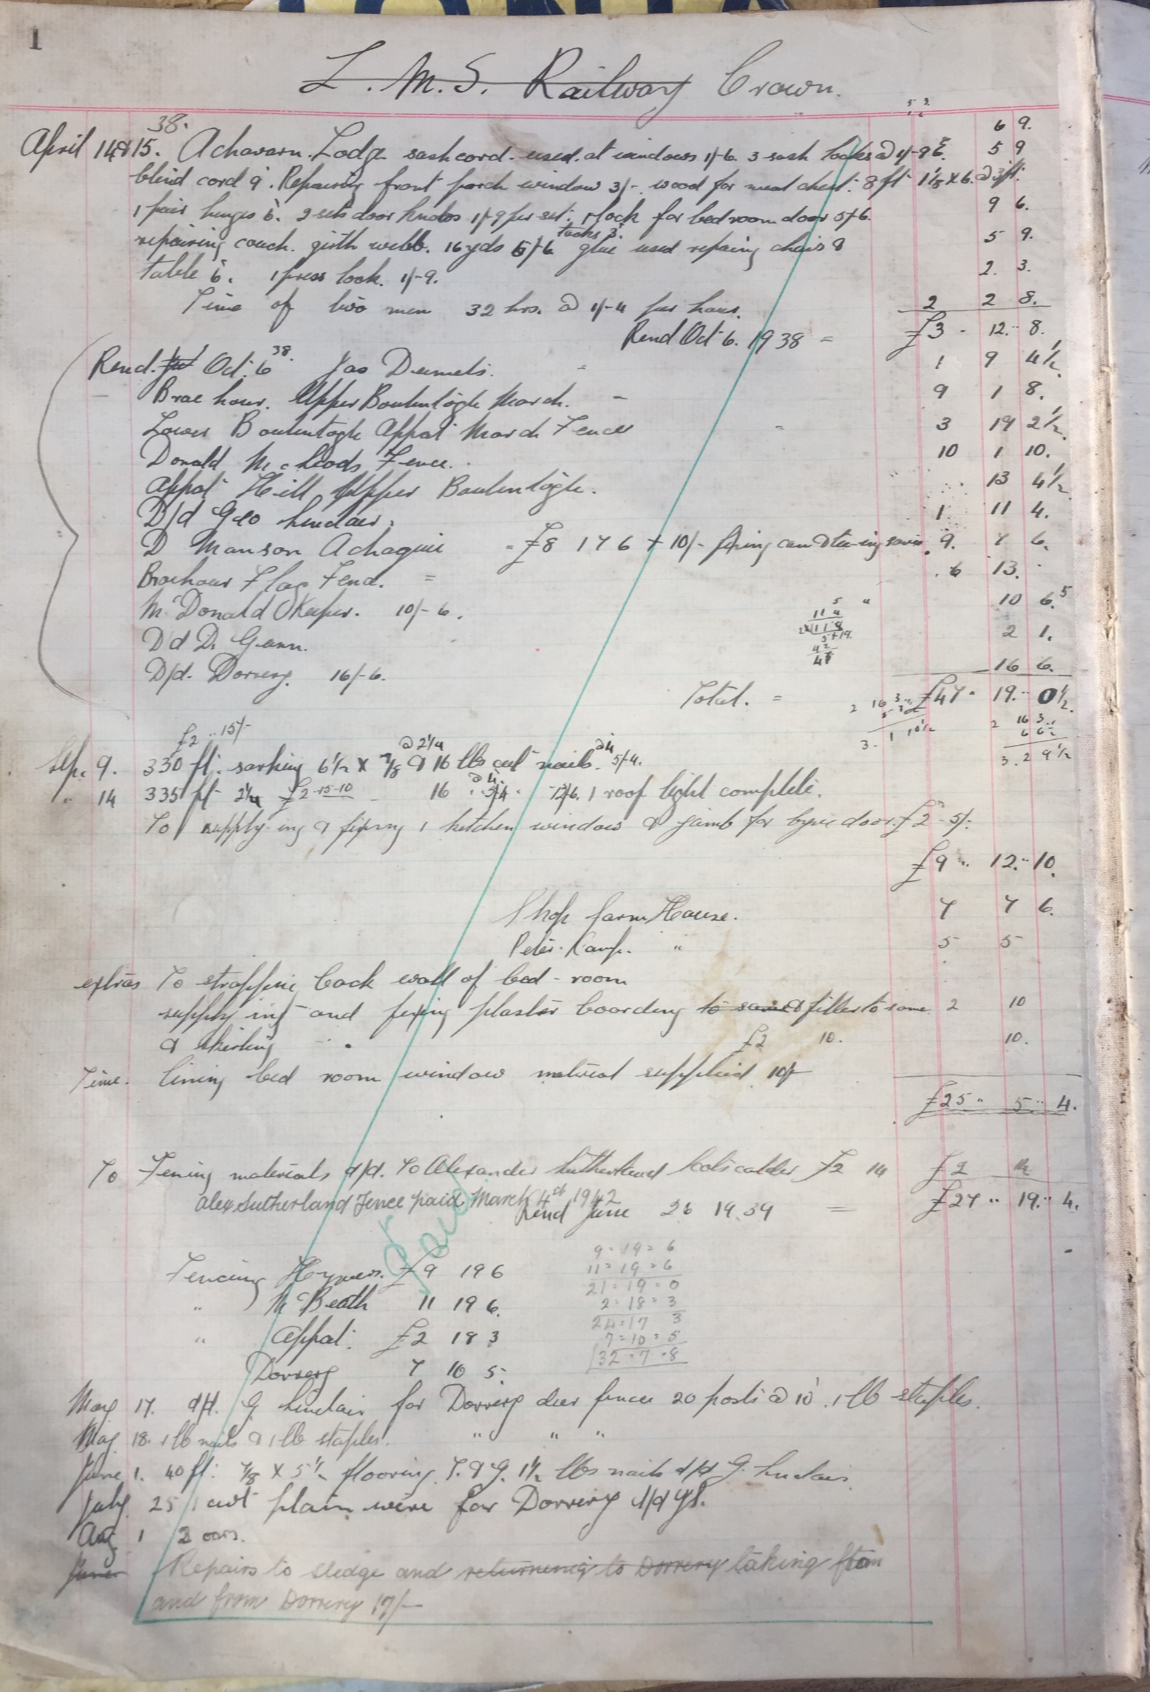 1
L. M. S. Railway Crown.
38.
6 9.
April 14&15. Achavarn Lodge sashcord used at windows 1/-6. 3 sash locks @ 1/-9 5 9
blind cord 9. Repairing front porch window 3/- wood for meat chest: 8 ft 1 1/8 x 6. @ 3 ft.
1 pair hinges 6. 2 sets door knobs 1/9 per set: 1 lock for bedroom door 5/6. 9 6.
tacks 3.
repairing couch. girth webb. 16 yds 5/6 glue used repairing chairs & 5 9.
table 6. 1 press lock. 1/-9. 2. 3.
Time of two men 32 hrs. @ 1/-4 per hour. 2 2 8.
Rend Oct 6. 1938 = £3 - 12 - 8.
Rend. Oct. 6 38. Jas Dunnets. 1 9 4 1/2
Braehour. Upper March. 9 1 8.
Lower Appat March Fences 3 19 2 1/2
Donald McLeods Fence. 10 1 10.
Appat Hill Upper 13 4 1/2
D/d Geo Sinclair. 1 11 4.
D Manson Achaguie = £8 17 6 + 10/- fixing 9. 7 6.
Braehour Flag Fence. = 6 13.
McDonald Keeper. 10/-6. 10 6.
D/d D. Gunn. 2 1.
D/d. Dorrery. 16/-6. 16 6.
Total. = £47 - 19 - 0 1/2
£2 .. 15/-
@ 2 1/4
Sep. 9. 330 ft. sarking 6 1/2 x 7/8 & 16 lbs cut nails @ 4 5/4.
" 14 335 ft 2 1/4 £2-15-10 16 @ 4. 5/4. 1 roof light complete.
To supplying & fixing 1 kitchen window & jamb for byre door. £2 - 5/-
£9 .. 12 - 10.
Shop farm House. 7 7 6.
Peter. " 5 5
extras To strapping back wall of bed-room
supplying and fixing plaster boarding to same & fillers to same 2 10
& skirting £2 10. 10.
Time. lining bed room window material supplied 10/-
£25 .. 5 .. 4.
To Fencing materials d/d. To Alexander Sutherland Scotscalder £2 14 £2 14
Alex Sutherland Fence paid March 4th 1942
Rend June 26 1939 = £27 .. 19 .. 4.
Paid
9=19=6
Fencing £9 19 6 11=19=6
21=19=0
" McBeath 11 19 6. 2=18=3
24=17 3
" Appat: £2 18 3 7=10=5
32=7=8
Dorrery 7 10 5
May 17. d/d. G Sinclair for Dorrery deer fence 20 posts @ 10. 1 lb staples.
May 18. 1 lb nails & 1 lb staples. " " "
June 1. 40 ft: 7/8 x 5 1/2 flooring. T. & G. 1 1/2 lbs nails d/d G. Sinclair
July 25 1 cwt plain wire for Dorrery d/d
Aug 1 2 oars.
June Repairs to sledge and returning to Dorrery taking from
and from Dorrery 17/-